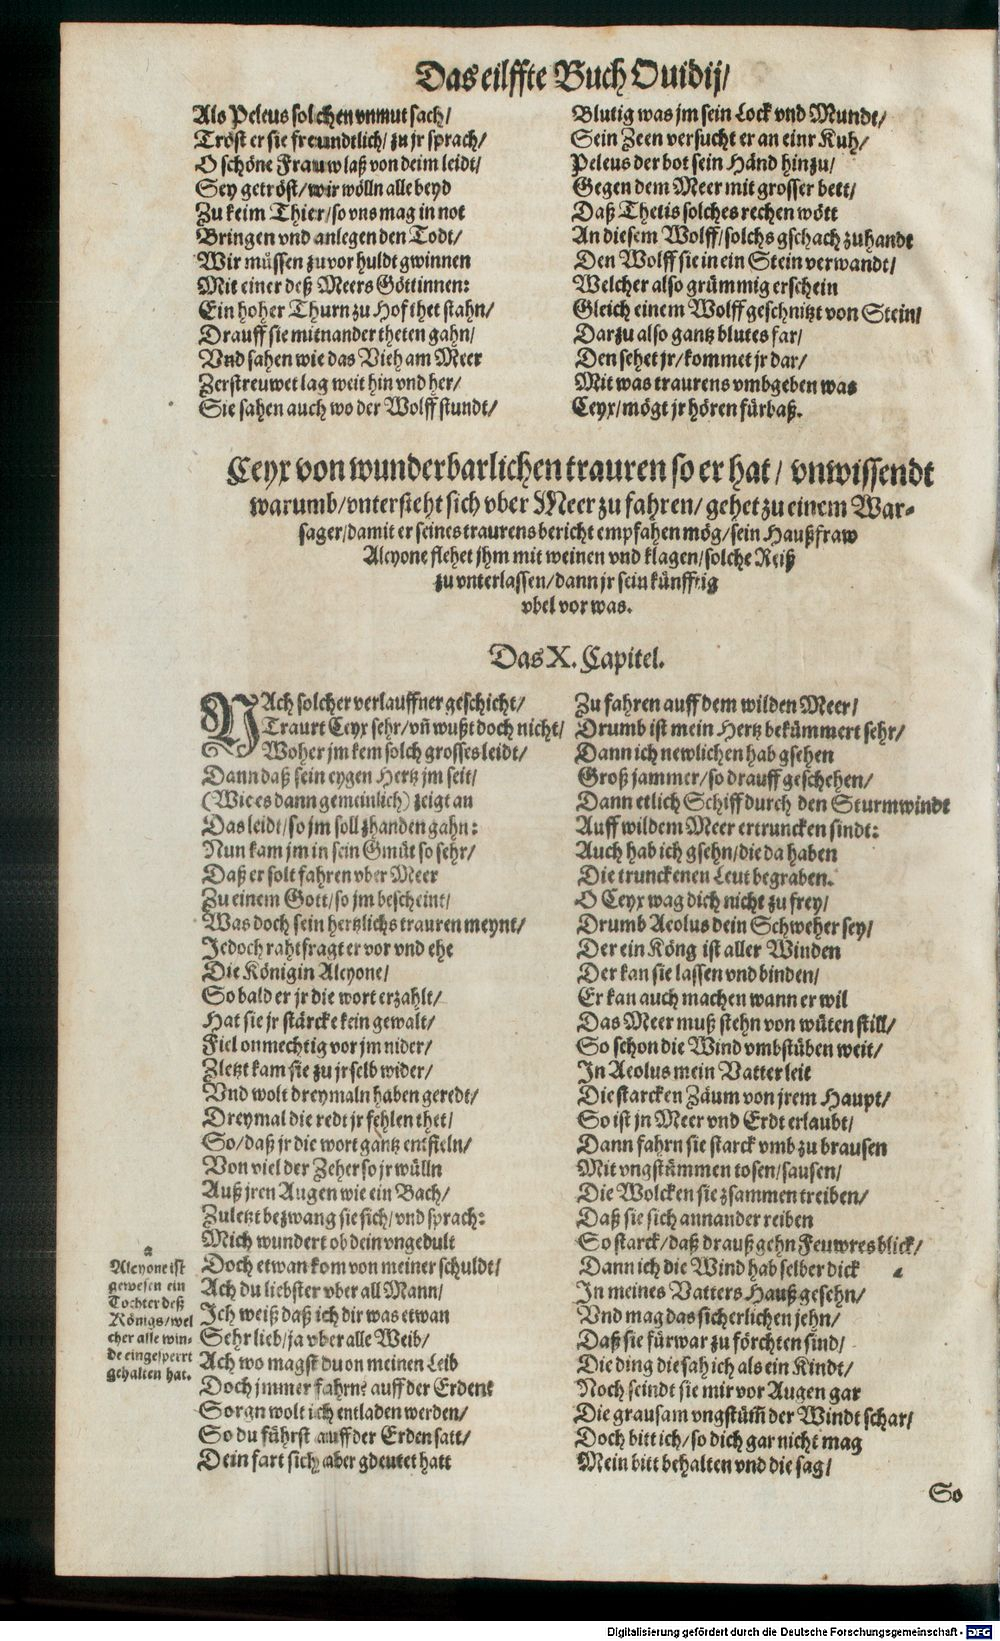 Das eilffte Buch Ouidij/
Als Peleus solchen vnmut sach/
Tröst er sie freundtlich/ zu jr sprach/
O schöne Frauw laß von deim leidt/
Sey getröst/ wir wölln alle beyd
Zu keim Thier/ so vns mag in not
Bringen vnd anlegen den Todt/
Wir müssen zuvor huldt gwinnen
Mit einer deß Meers Göttinnen:
Ein hoher Thurn zu Hof thet stahn/
Drauff sie mitnander theten gahn/
Vnd sahen wie das Vieh am Meer
Zerstreuwet lag weit hin vnd her/
Sie sahen auch wo der Wolff stundt/
Blutig was jm sein Lock vnd Mundt/
Sein Zeen versucht er an einr Kuh/
Peleus der bot sein Händ hinzu/
Gegen dem Meer mit grosser bett/
Daß Thetis solches rechen wött
An diesem Wolff/ solchs gschach zuhandt
Den Wolff sie in ein Stein verwandt/
Welcher also grümmig erschein
Gleich einem Wolff geschnitzt von Stein/
Darzu also gantz blutes far/
Den sehet jr/ kommet jr dar/
Mit was traurens vmbgeben was
Ceyx/ mögt jr hören fürbaß.
Ceyx von wunderbarlichen trauren so er hat/ vnwissendt
warumb/ vntersteht sich vber Meer zu fahren/ gehet zu einem War-
sager/ damit er seines traurens bericht empfahen mög/ sein Haußfraw
Alcyone flehet jhm mit weinen vnd klagen/ solche Reiß
zu vnterlassen/ dann jr sein künfftig
vbel vor was.
Das X. Capitel.
NAch solcher verlauffner geschicht/
Traurt Ceyx sehr/ vñ wußt doch nicht/
Woher jm kem solch grosses leidt/
Dann daß sein eygen Hertz jm seit/
(Wie es dann gemeinlich) zeigt an
Das leidt/ so jm soll zhanden gahn:
Nun kam jm in sein Gmüt so sehr/
Daß er solt fahren vber Meer
Zu einem Gott/ so jm bescheint/
Was doch sein hertzlichs trauren meynt/
Jedoch rahtfragt er vor vnd ehe
Die Königin Alcyone/
So bald er jr die wort erzahlt/
Hat sie jr stärcke kein gewalt/
Fiel onmechtig vor jm nider/
Zletzt kam sie zu jr selb wider/
Vnd wolt dreymaln haben geredt/
Dreymal die redt jr fehlen thet/
So/ daß jr die wort gantz entfieln/
Von viel der Zeher so jr wülln
Auß jren Augen wie ein Bach/
Zuletzt bezwang sie sich/ vnd sprach:
Mich wundert ob dein vngedult
Doch etwan kom von meiner schuldt/
Ach du liebster vber all Mann/
Ich weiß daß ich dir was etwan
Sehr lieb/ ja vber alle Weib/
Ach wo magst du on meinen Leib
Doch jmmer fahrn? auff der Erden?
Sorgn wolt ich entladen werden/
So du führst auff der Erden satt/
Dein fart sich aber gdeutet hatt
a
Alcyone ist
gewesen ein
Tochter deß
Königs/ wel
cher alle win-
de eingesperrt
gehalten hat.
Zu fahren auff dem wilden Meer/
Drumb ist mein Hertz bekümmert sehr/
Dann ich newlichen hab gsehen
Groß jammer/ so drauff geschehen/
Dann etlich Schiff durch den Sturmwindt
Auff wildem Meer ertruncken sindt:
Auch hab ich gsehn/ die da haben
Die trunckenen Leut begraben.
O Ceyx wag dich nicht zu frey/
Drumb Aeolus dein Schweher sey/
Der ein Köng ist aller Winden
Der kan sie lassen vnd binden/
Er kan auch machen wann er wil
Das Meer muß stehn von wüten still/
So schon die Wind vmbstüben weit/
In Aeolus mein Vatter leit
Die starcken Zäum von jrem Haupt/
So ist jn Meer vnd Erdt erlaubt/
Dann fahrn sie starck vmb zu brausen
Mit vngstümmen tosen/ sausen/
Die Wolcken sie zsammen treiben/
Daß sie sich annander reiben
So starck/ daß drauß gehn Feuwresblick/
Dann ich die Wind hab selber dick
In meines Vatters Hauß gesehn/
Vnd mag das sicherlichen jehn/
Daß sie fürwar zu förchten sind/
Die ding die sah ich als ein Kindt/
Noch seindt sie mir vor Augen gar
Die grausam vngstüm̃ der Windt schar/
Doch bitt ich/ so dich gar nicht mag
Mein bitt behalten vnd die sag/
So
Digitalisierung gefördert durch die Deutsche Forschungsgemeinschaft - DFG